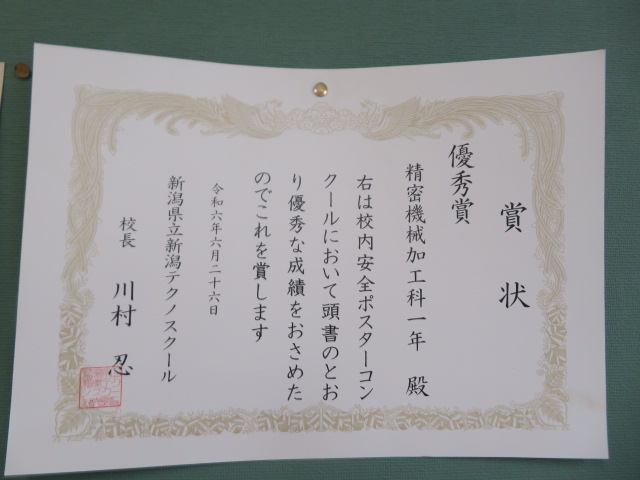 賞状
優秀賞
精密機械加工科一年 殿
右は校内安全ポスターコン
クールにおいて頭書のとお
り優秀な成績をおさめた
のでこれを賞します
令和六年六月二十六日
新潟県立新潟テクノスクール
校長 川村 忍